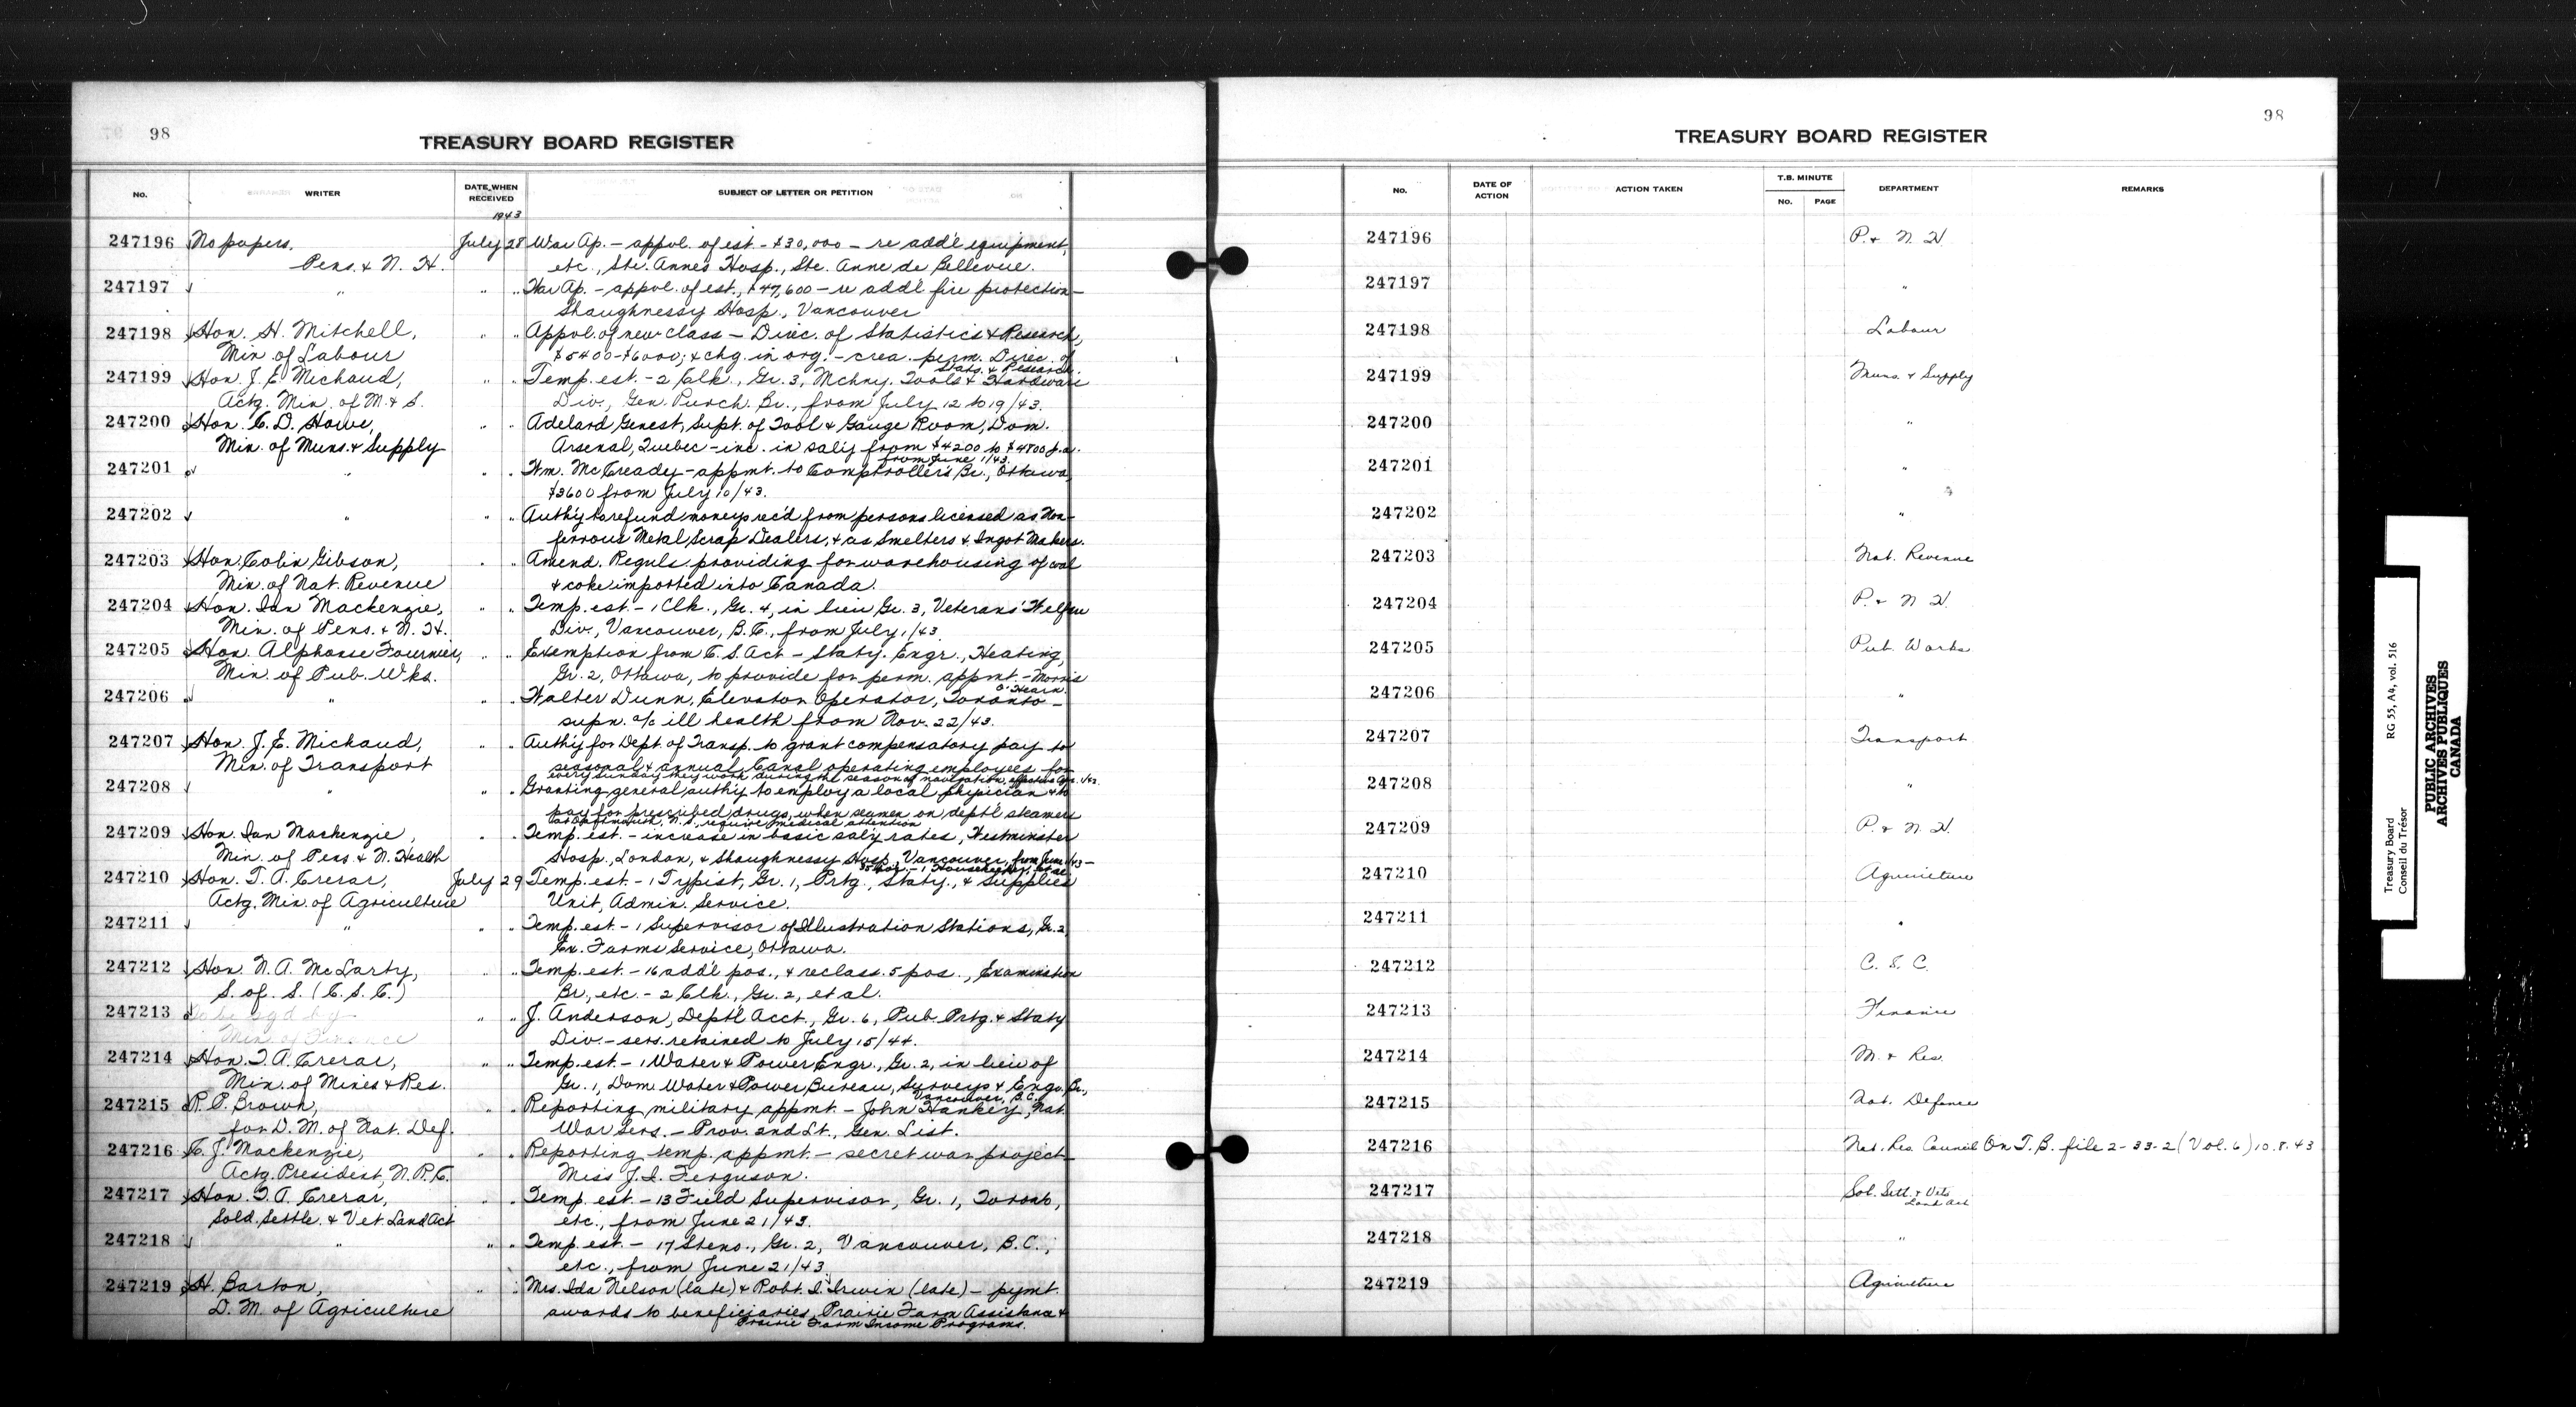 98
TREASURY BOARD REGISTER
No. WRITER DATE WHEN RECEIVED SUBJECT OF LETTER OR PETITION
1943
247196 No papers, July 28 War Ap. - appvl. of est. - $30,000 - re add'l equipment,
Pens. & N. H. etc., Ste. Annes Hosp., Ste. Anne de Bellevue.
247197 " " " War Ap. - appvl. of est., $47,600 - re addl fire protection -
Shaughnessy Hosp., Vancouver
247198 Hon. H. Mitchell, " " Appvl. of new class - Direc. of Statistics & Research,
Min. of Labour $5400-$6000; & chg. in org. - crea. perm. Direc. of
Stats. & Research.
247199 Hon. J. E. Michaud, " " Temp. est. - 2 Clk., Gr. 3, Mchny. Tools & Hardware
Actg. Min. of M. & S. Div., Gen. Purch. Br., from July 12 to 19/43.
247200 Hon. C. D. Howe, " " Adelard Genest, Supt. of Tool & Gauge Room, Dom.
Min. of Muns. & Supply Arsenal, Quebec - inc. in sal'y from $4200 to $4800 p.a.
from June 1/43.
247201 " " " Wm. McCready - appmt. to Comptroller's Br., Ottawa,
$3600 from July 10/43.
247202 " " " Auth'y to refund moneys rec'd from persons licensed as Non-
ferrous Metal Scrap Dealers, & as Smelters & Ingot Makers.
247203 Hon. Colin Gibson, " " Amend. Reguls. providing for warehousing of coal
Min. of Nat. Revenue & coke imported into Canada.
247204 Hon. Ian Mackenzie, " " Temp. est. - 1 Clk., Gr. 4, in lieu Gr. 3, Veterans' Welfare
Min. of Pens. & N. H. Div., Vancouver, B.C., from July 1/43.
247205 Hon. Alphonse Fournier, " " Exemption from C. S. Act - Staty. Engr., Heating,
Min. of Pub. Wks. Gr. 2, Ottawa, to provide for perm. appmt. - Morris
O'Hearn.
247206 " " " Walter Dunn, Elevator Operator, Toronto -
supn. a/c ill health from Nov. 22/43.
247207 Hon. J. E. Michaud, " " Auth'y for Dept. of Transp. to grant compensatory pay to
Min. of Transport seasonal & annual Canal operating employees for
every Sunday they work during the season of navigation, effective Apr. 1/42.
247208 " " " Granting general auth'y to employ a local physician & to
pay for prescribed drugs, when seamen on dept'l steamers
N.S., require medical attention
247209 Hon. Ian Mackenzie, " " Temp. est. - increase in basic sal'y rates, Westminster
Min. of Pens. & N. Health Hosp., London, & Shaughnessy Hosp., Vancouver, from June 1/43 -
1 Housekeeper, et al.
247210 Hon. T. A. Crerar, July 29 Temp. est. - 1 Typist, Gr. 1, Prtg., Staty., & Supplies
Actg. Min. of Agriculture Unit, Admin. Service.
247211 " " " Temp. est. - 1 Supervisor of Illustration Stations, Gr. 2,
Ex. Farms Service, Ottawa.
247212 Hon. N. A. McLarty, " " Temp. est. - 16 add'l pos., & reclass. 5 pos., Examination
S. of S. (C. S. C.) Br., etc. - 2 Clk., Gr. 2, et al.
247213 To be sgd by " " J. Anderson, Dept'l Acct., Gr. 6, Pub. Prtg. & Staty
Min. of Finance Div. - sers. retained to July 15/44.
247214 Hon. T. A. Crerar, " " Temp. est. - 1 Water & Power Engr., Gr. 2, in lieu of
Min. of Mines & Res. Gr. 1, Dom. Water & Power Bureau, Surveys & Engr. Br.,
Vancouver, B.C.
247215 R. P. Brown, " " Reporting military appmt. - John Hankey, Nat.
for D. M. of Nat. Def. War Sers. - Prov. 2nd Lt., Gen. List.
247216 C. J. Mackenzie, " " Reporting temp. appmt. - secret war project
Actg. President, N.R.C. Miss J. I. Ferguson.
247217 Hon. T. A. Crerar, " " Temp. est. - 13 Field Supervisor, Gr. 1, Toronto,
Sold. Settle. & Vet. Land Act etc., from June 21/43.
247218 " " " Temp. est. - 17 Steno., Gr. 2, Vancouver, B.C.,
etc., from June 21/43.
247219 H. Barton, " " Mrs. Ida Nelson (late) & Robt. I. Irwin (late) - pymt.
D. M. of Agriculture awards to beneficiaries, Prairie Farm Assistance &
Prairie Farm Income Programs.
98
TREASURY BOARD REGISTER
No. DATE OF ACTION ACTION TAKEN T.B. MINUTE No. PAGE DEPARTMENT REMARKS
247196 P. & N. H.
247197 "
247198 Labour
247199 Muns. & Supply
247200 "
247201 "
247202 "
247203 Nat. Revenue
247204 P. & N. H.
247205 Pub. Works
247206 "
247207 Transport
247208 "
247209 P. & N. H.
247210 Agriculture
247211 "
247212 C. S. C.
247213 Finance
247214 M. & Res.
247215 Nat. Defence
247216 Nat. Res. Council On T. B. file 2-33-2 (Vol. 6) 10.8.43
247217 Sol. Sett. & Vets
Land Act
247218 "
247219 Agriculture
Treasury Board RG 55, A4, vol. 516
Conseil du Trésor
PUBLIC ARCHIVES
ARCHIVES PUBLIQUES
CANADA